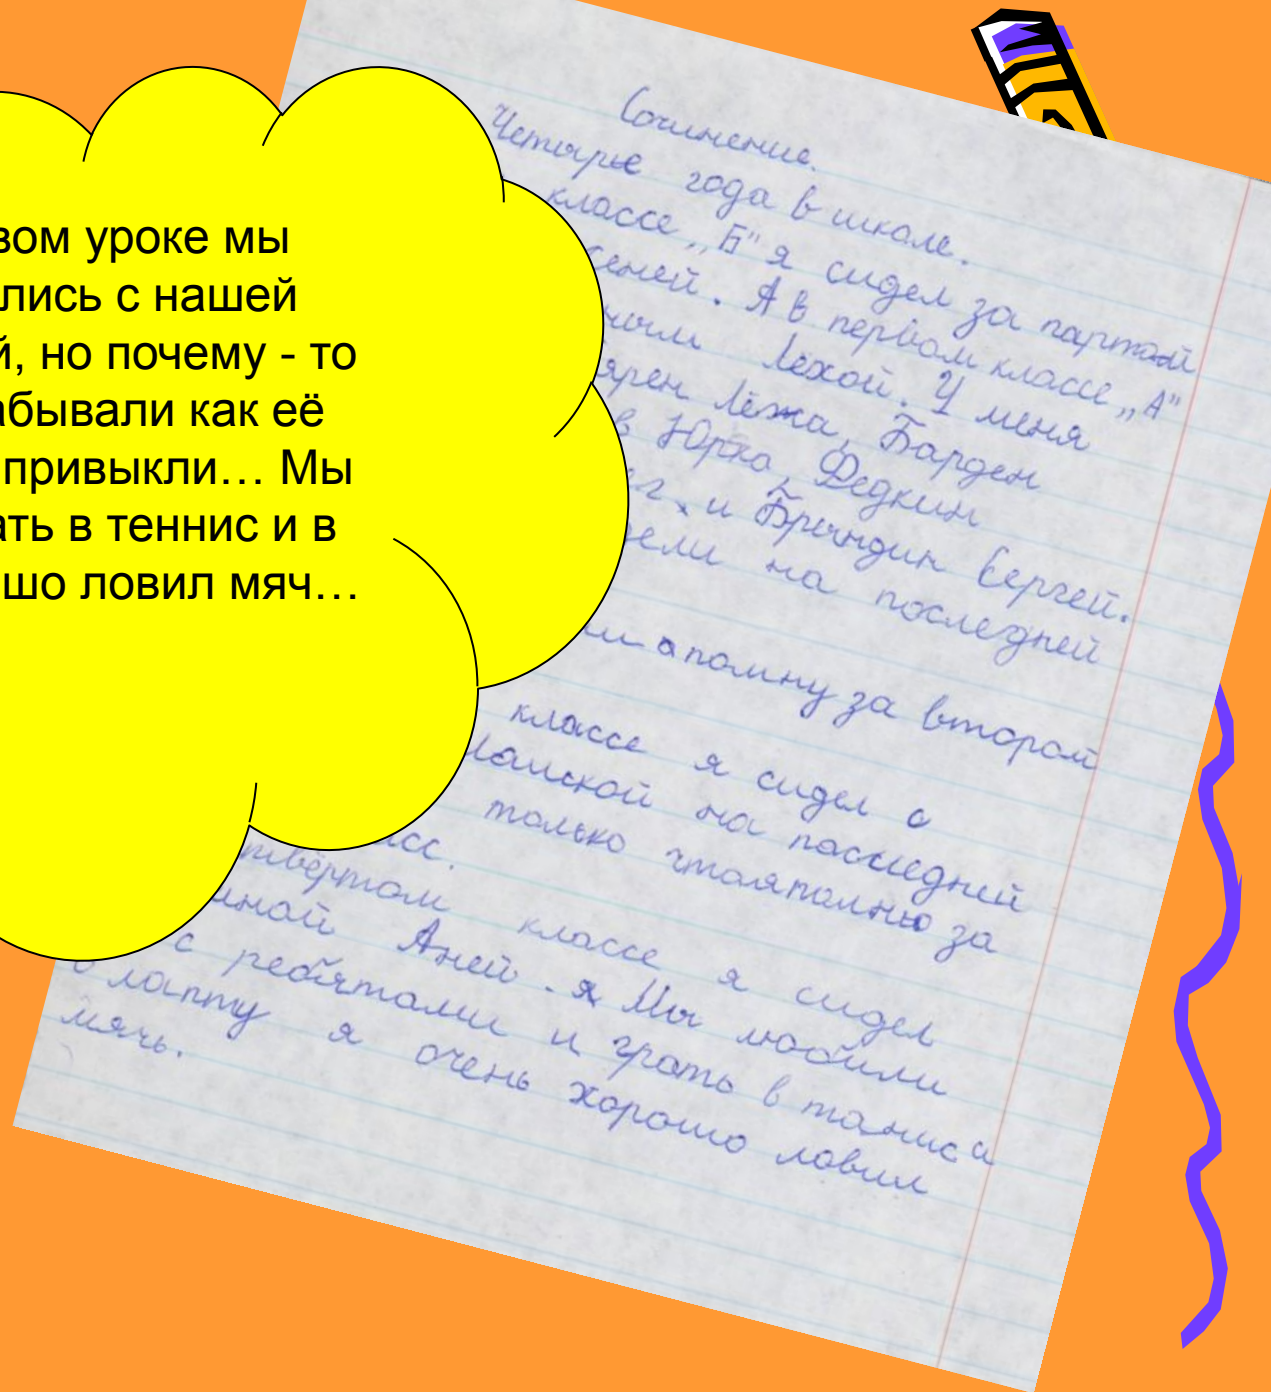 вом уроке мы
лись с нашей
й, но почему - то
абывали как её
привыкли... Мы
ать в теннис и в
шо ловил мяч...
Сочинение.
Четыре года в школе.
классе „Б" я сидел за партой
сеней. А в первом классе „А"
Лехой. У меня
Лёжа, Барден
в Юрка, Федкин
и Брындин Сергей.
на последней
апомну за втором
классе я сидел с
на паследней
только чтаяпомню за
сс.
твёртом классе я сидел
Аней. я Мы любили
с ребятами и грать в танис и
в лапту я очень хорошо ловил
мячь.